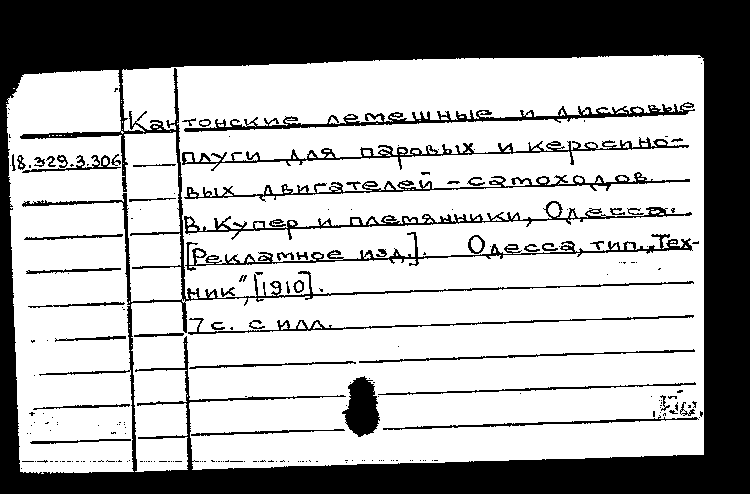 Кантонские лемешные и дисковые
18.329.3.306 плуги для паровых и керосино-
вых двигателей - самоходов
В. Купер и племянники, Одесса.
[Рекламное изд.]. Одесса, тип. „Тех-
ник", [1910].
7 с. с илл.